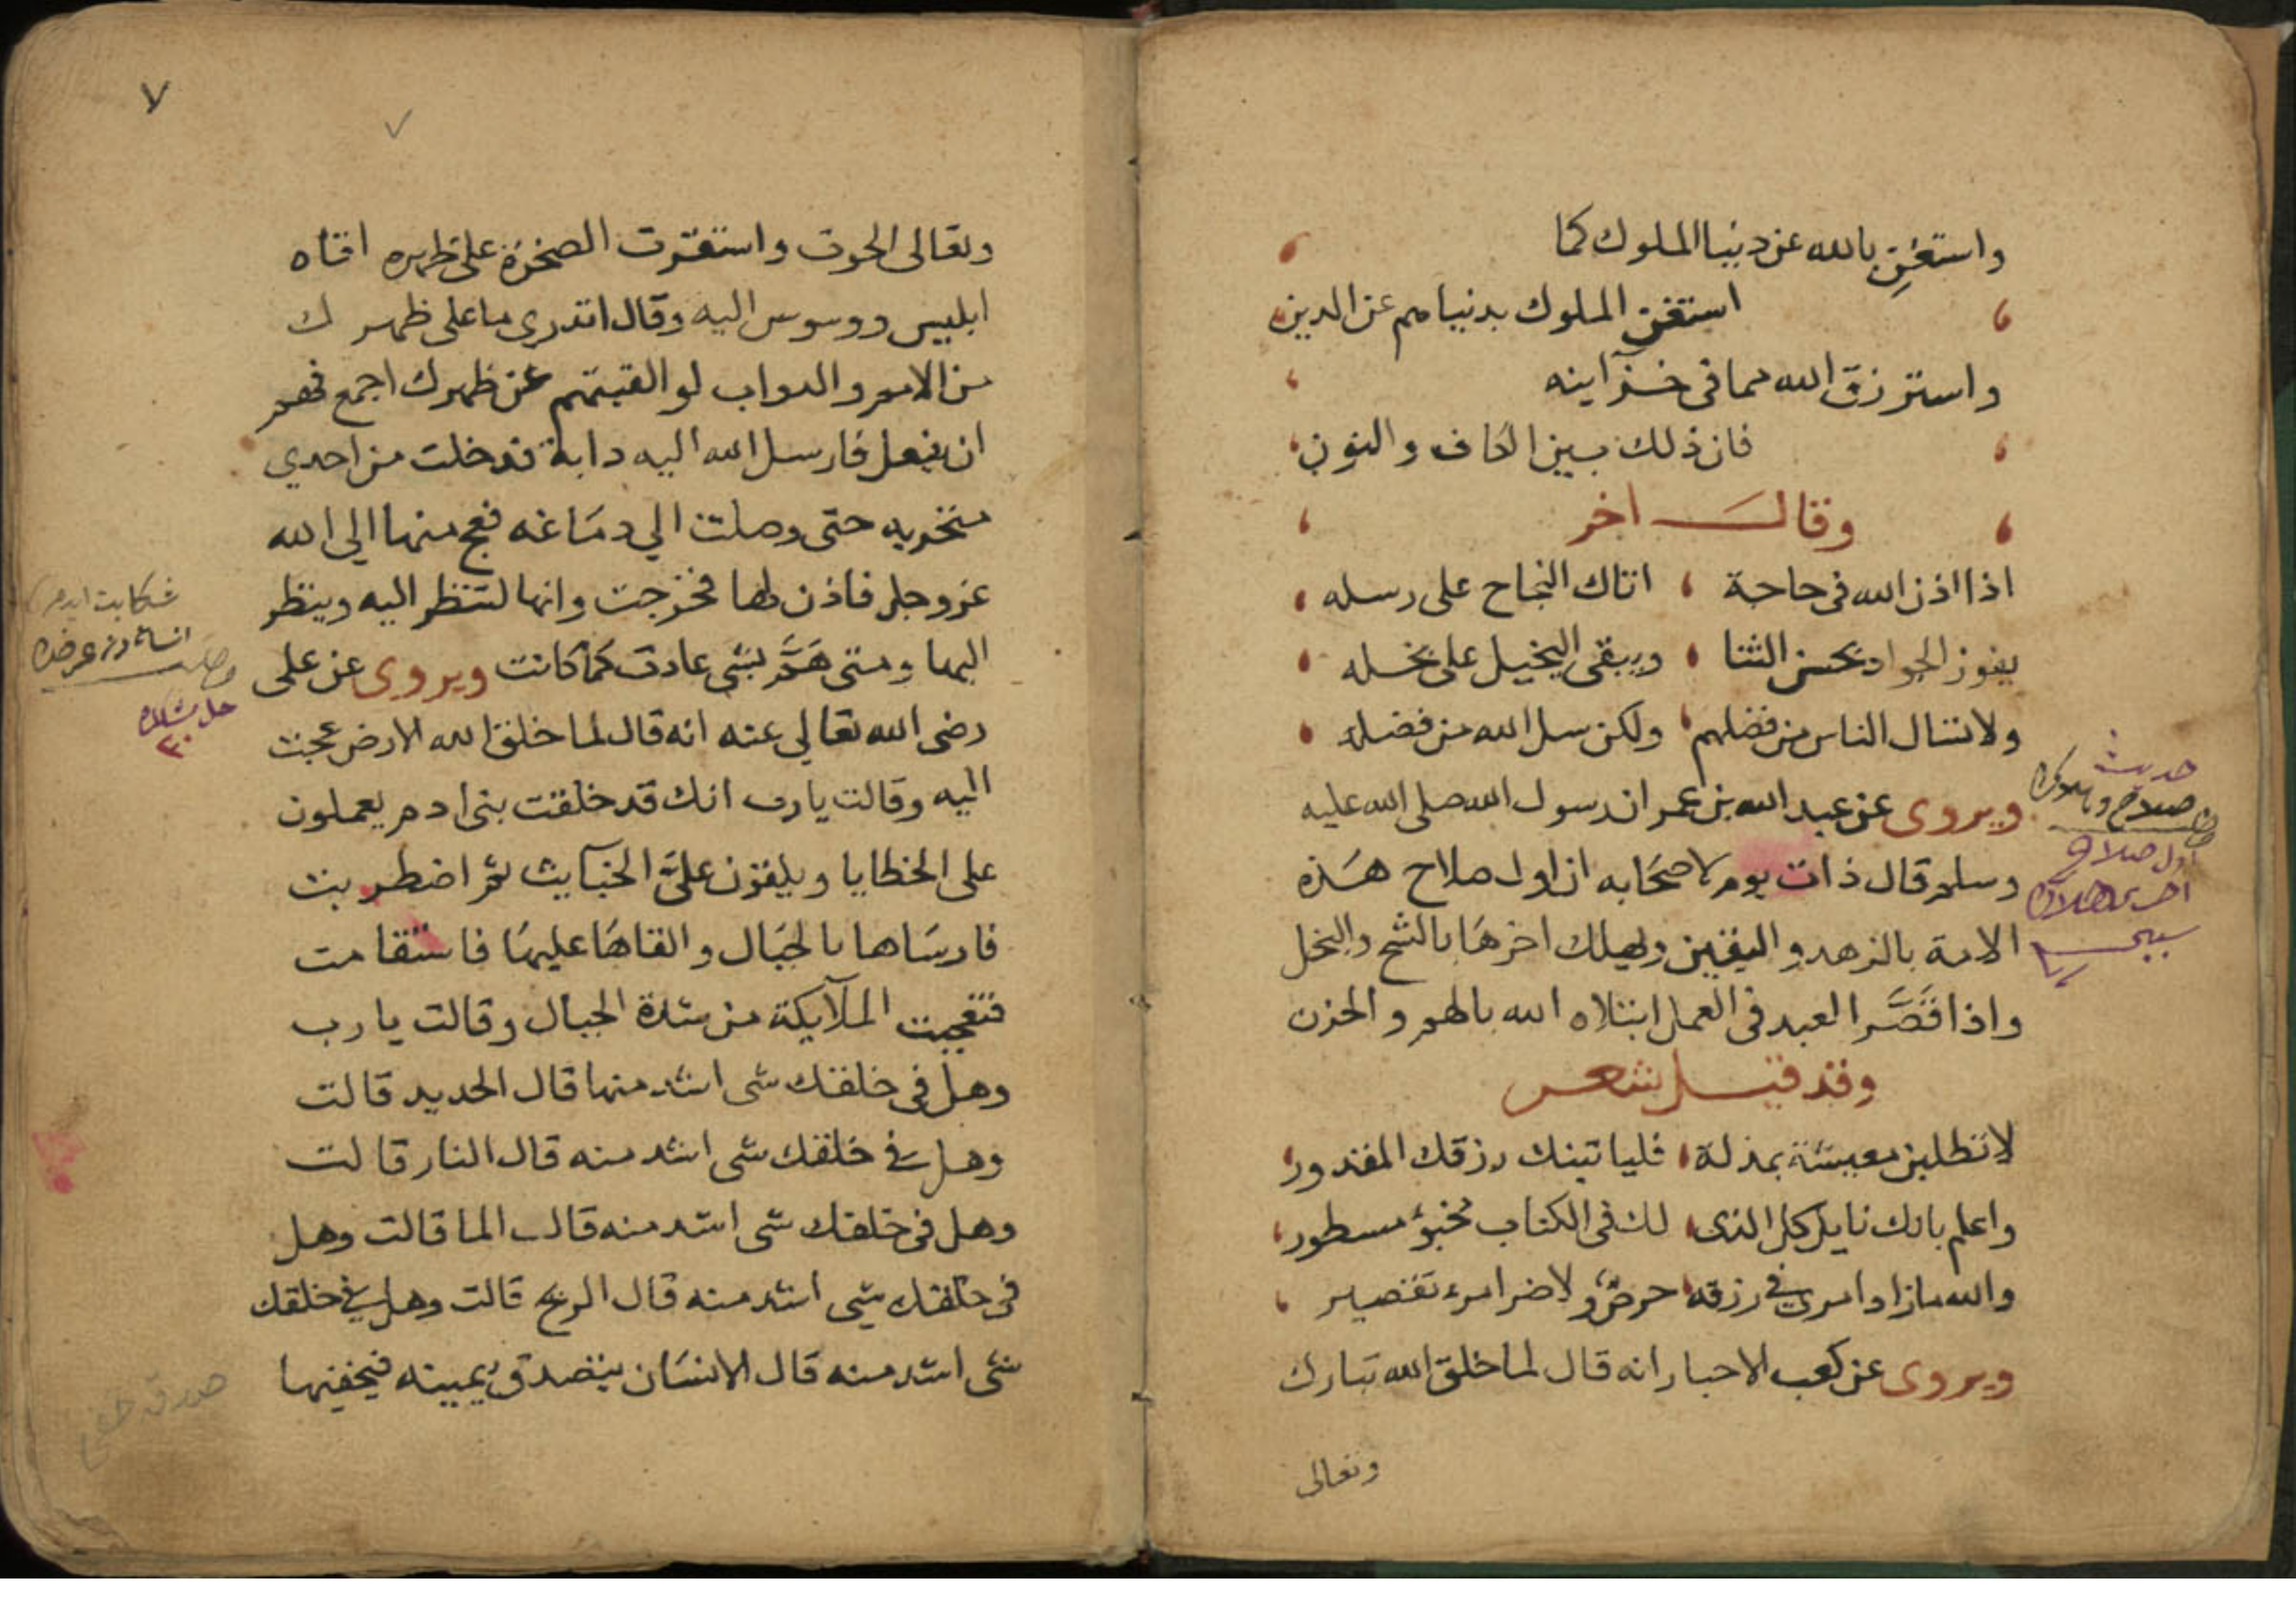 واستغنِ بالله عن دنيا الملوك كما
استغنى الملوك بدنياهم عن الدين
واسترزق الله مما فى خزآينه
فان ذلك بين الكاف والنون
وقال اخر
اذا اذن الله فى حاجة ، اتاك النجاح على رسله ،
يفوز الجواد بحسن الثنا ، ويبقى البخيل على بخله ،
ولا تسال الناس من فضلهم ، ولكن سل الله من فضله ،
ويروى عن عبد الله بن عمر ان رسول الله صلى الله عليه
وسلم قال ذات يوم لاصحابه ان اول صلاح هذه
الامة بالزهد واليقين ويهلك اخرها بالشح والبخل
واذا قَصَّر العبد فى العمل ابتلاه الله بالهم والحزن
وقد قيل شعر
لا تطلبن معيشة بمذلة ، فلياتينك رزقك المقدور ،
واعلم بانك نايل كل الذى ، لك فى الكتاب مخبؤ مسطور ،
والله ما زاد امرى فى رزقه ، حرصٌ ولا ضر امرء تقصير ،
ويروى عن كعب الاحبار انه قال لما خلق الله تبارك
وتعالى
حديث
صلاح وهلاك
اول صلاح
٧
وتعالى الحوت واستقرت الصخرة على ظهره اتاه
ابليس ووسوس اليه وقال اتدرى ما على ظهرك
من الامم والدواب لو القيتهم عن ظهرك اجمع فهم
ان يفعل فارسل الله اليه دابة فدخلت من احدي
منخريه حتى وصلت الي دماغه فعج منها الي الله
عز وجل فاذن لها فخرجت وانها لتنظر اليه وينظر
اليها ومتى هَمَّ بشى عادت كما كانت ويروى عن على
رضى الله تعالي عنه انه قال لما خلق الله الارض عجت
اليه وقالت يا رب انك قد خلقت بنى ادم يعملون
على الخطايا ويلقون علىَّ الخبآيث ثم اضطربت
فارساها بالجبال والقاها عليها فاستقامت
فتعجبت الملآيكة من شدة الجبال وقالت يا رب
وهل فى خلقك شى اشد منها قال الحديد قالت
وهل فى خلقك شى اشد منه قال النار قالت
وهل فى خلقك شى اشد منه قال الما قالت وهل
فى خلقك شى اشد منه قال الريح قالت وهل فى خلقك
شى اشد منه قال الانسان يتصدق بيمينه فيخفيها
صدقه خفى